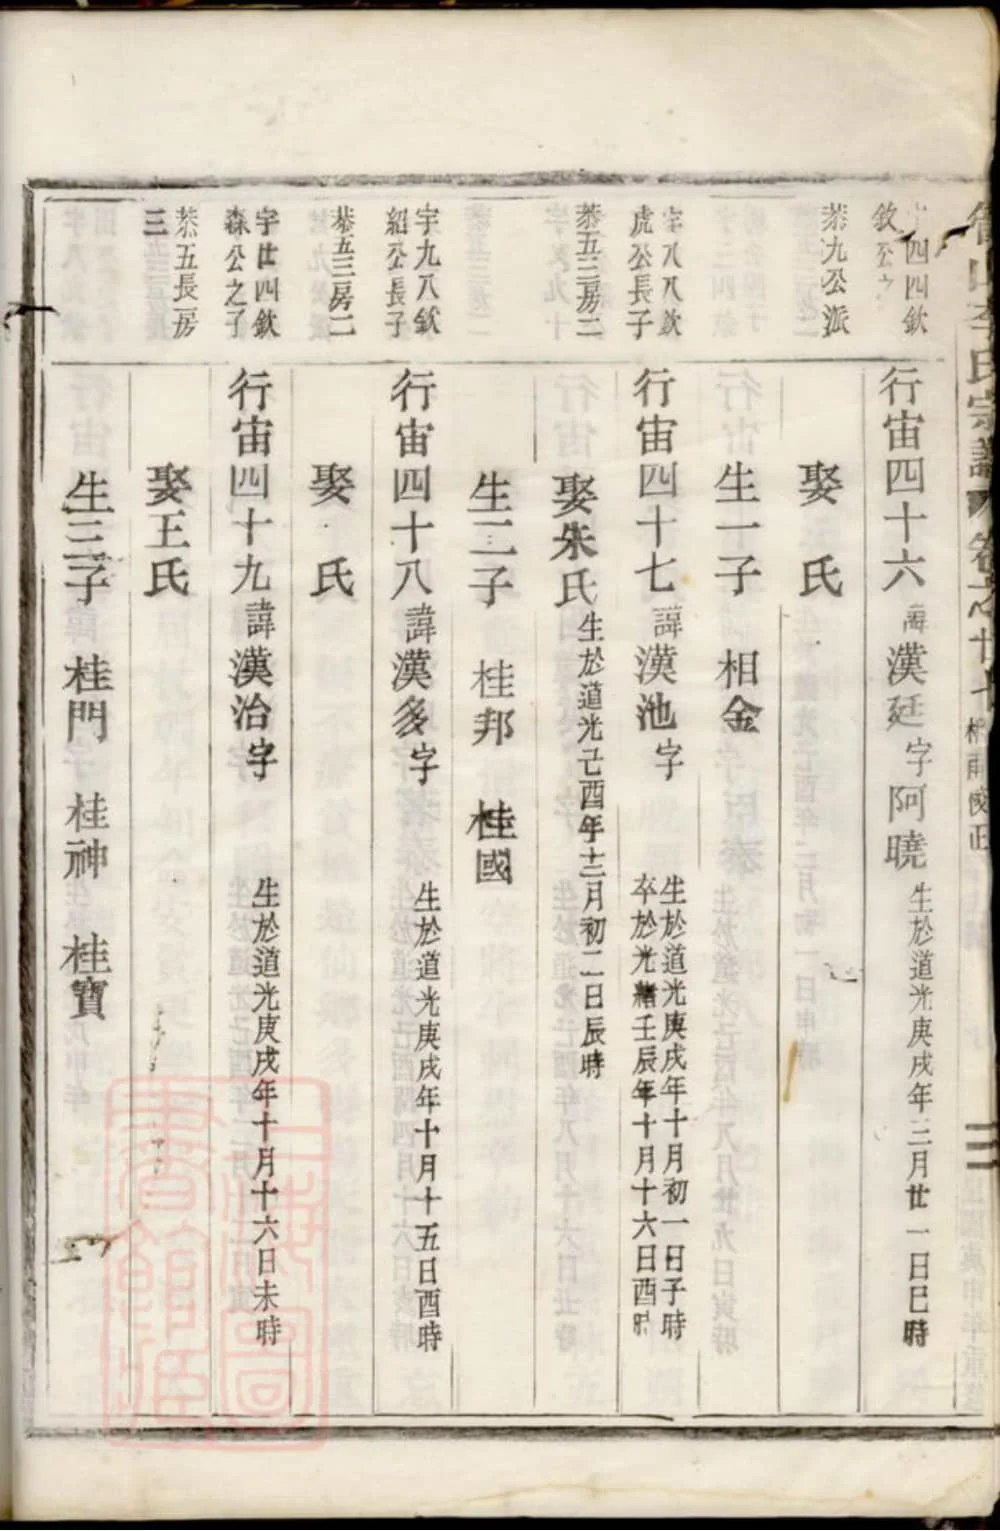 李氏宗譜 卷之十七
四四欽
敘公之
行宙四十六 諱 漢廷 字 阿曉 生於道光庚戌年三月廿一日巳時
恭九公派
娶 氏
生一子 相金
宇八八欽
虎公長子
行宙四十七 諱 漢池 字
生於道光庚戌年十月初一日子時
卒於光緒壬辰年十月十六日酉時
恭五三房二
娶朱氏 生於道光己酉年十二月初二日辰時
生二子 桂邦 桂國
宇九八欽
紹公長子
行宙四十八 諱 漢多 字 生於道光庚戌年十月十五日酉時
恭五三房二
娶 氏
宇廿四欽
森公之子
行宙四十九 諱 漢治 字 生於道光庚戌年十月十六日未時
恭五長房
三
娶王氏
生三子 桂門 桂神 桂寶
上海圖
書館藏